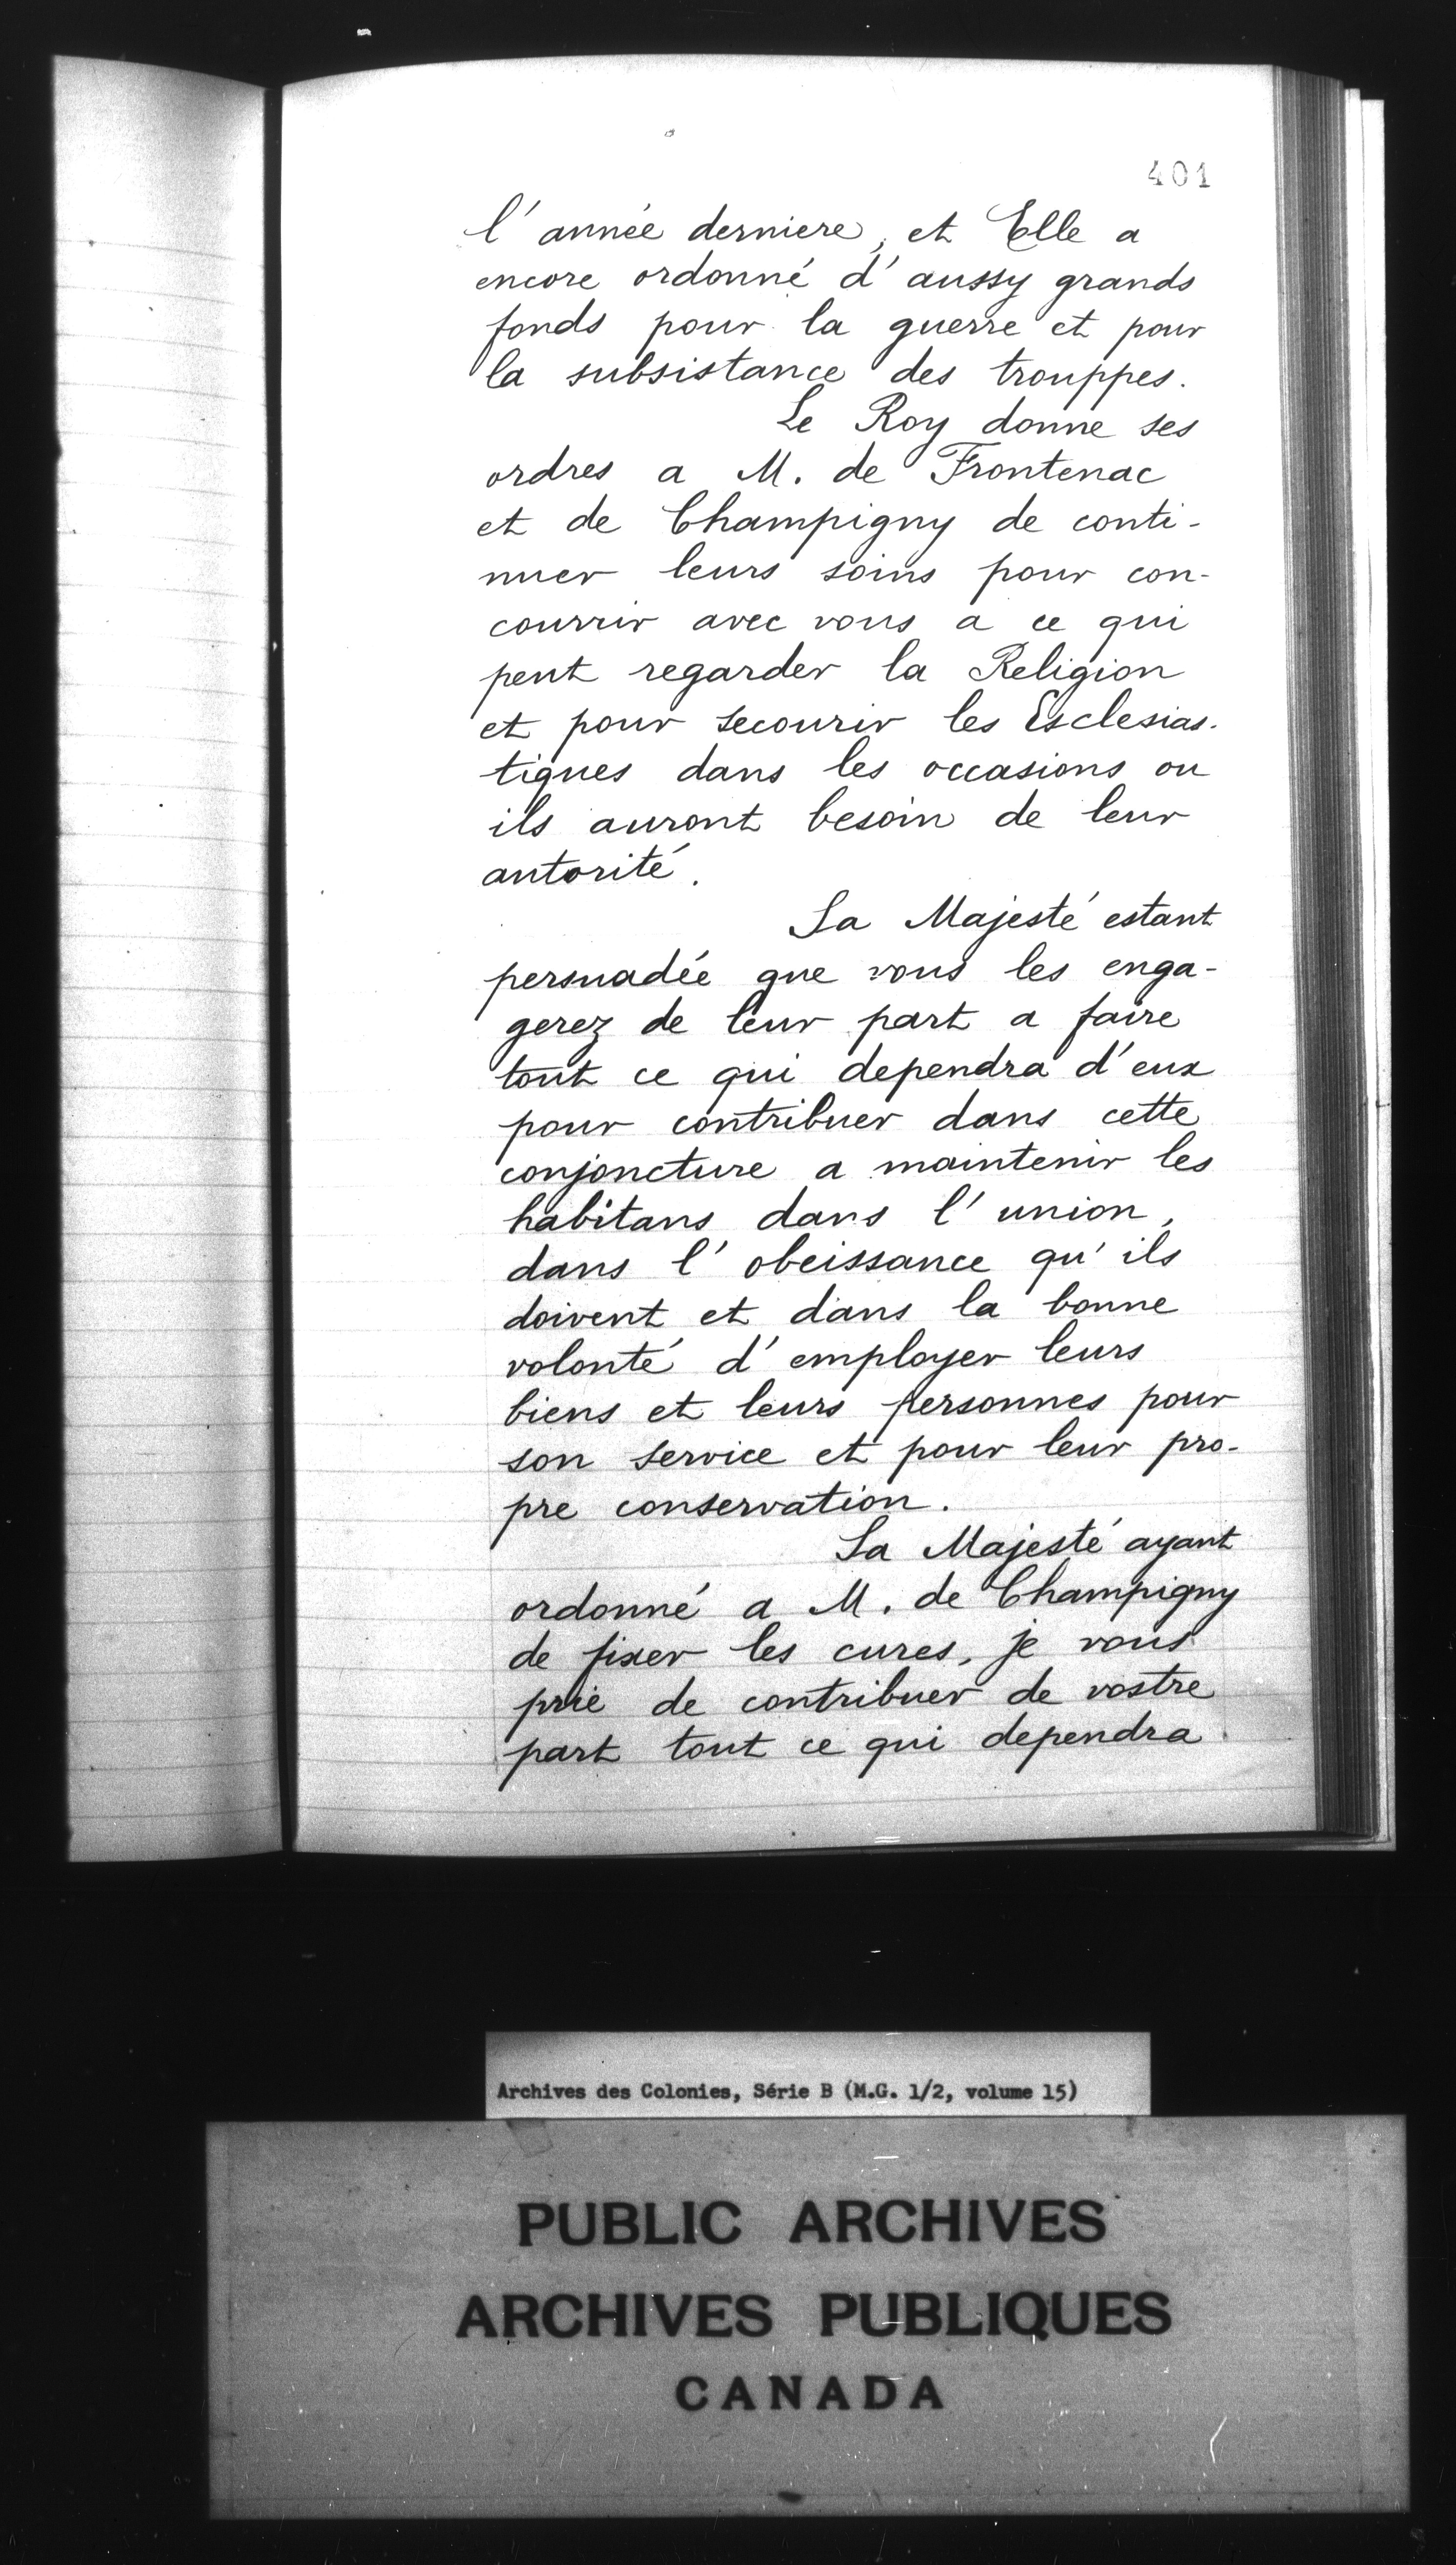 401
l'année derniere, et Elle a
encore ordonné d'aussy grands
fonds pour la guerre et pour
la subsistance des trouppes.
Le Roy donne ses
ordres a M. de Frontenac
et de Champigny de conti-
nuer leurs soins pour con-
courrir avec vous a ce qui
peut regarder la Religion
et pour secourir les Esclesias-
tiques dans les occasions ou
ils auront besoin de leur
autorité.
Sa Majesté estant
persuadée que vous les enga-
gerez de leur part a faire
tout ce qui dependra d'eux
pour contribuer dans cette
conjoncture a maintenir les
habitans dans l'union,
dans l'obeissance qu'ils
doivent et dans la bonne
volonté d'employer leurs
biens et leurs personnes pour
son service et pour leur pro-
pre conservation.
Sa Majesté ayant
ordonné a M. de Champigny
de fixer les cures, je vous
prie de contribuer de vostre
part tout ce qui dependra
Archives des Colonies, Série B (M.G. 1/2, volume 15)
PUBLIC ARCHIVES
ARCHIVES PUBLIQUES
CANADA